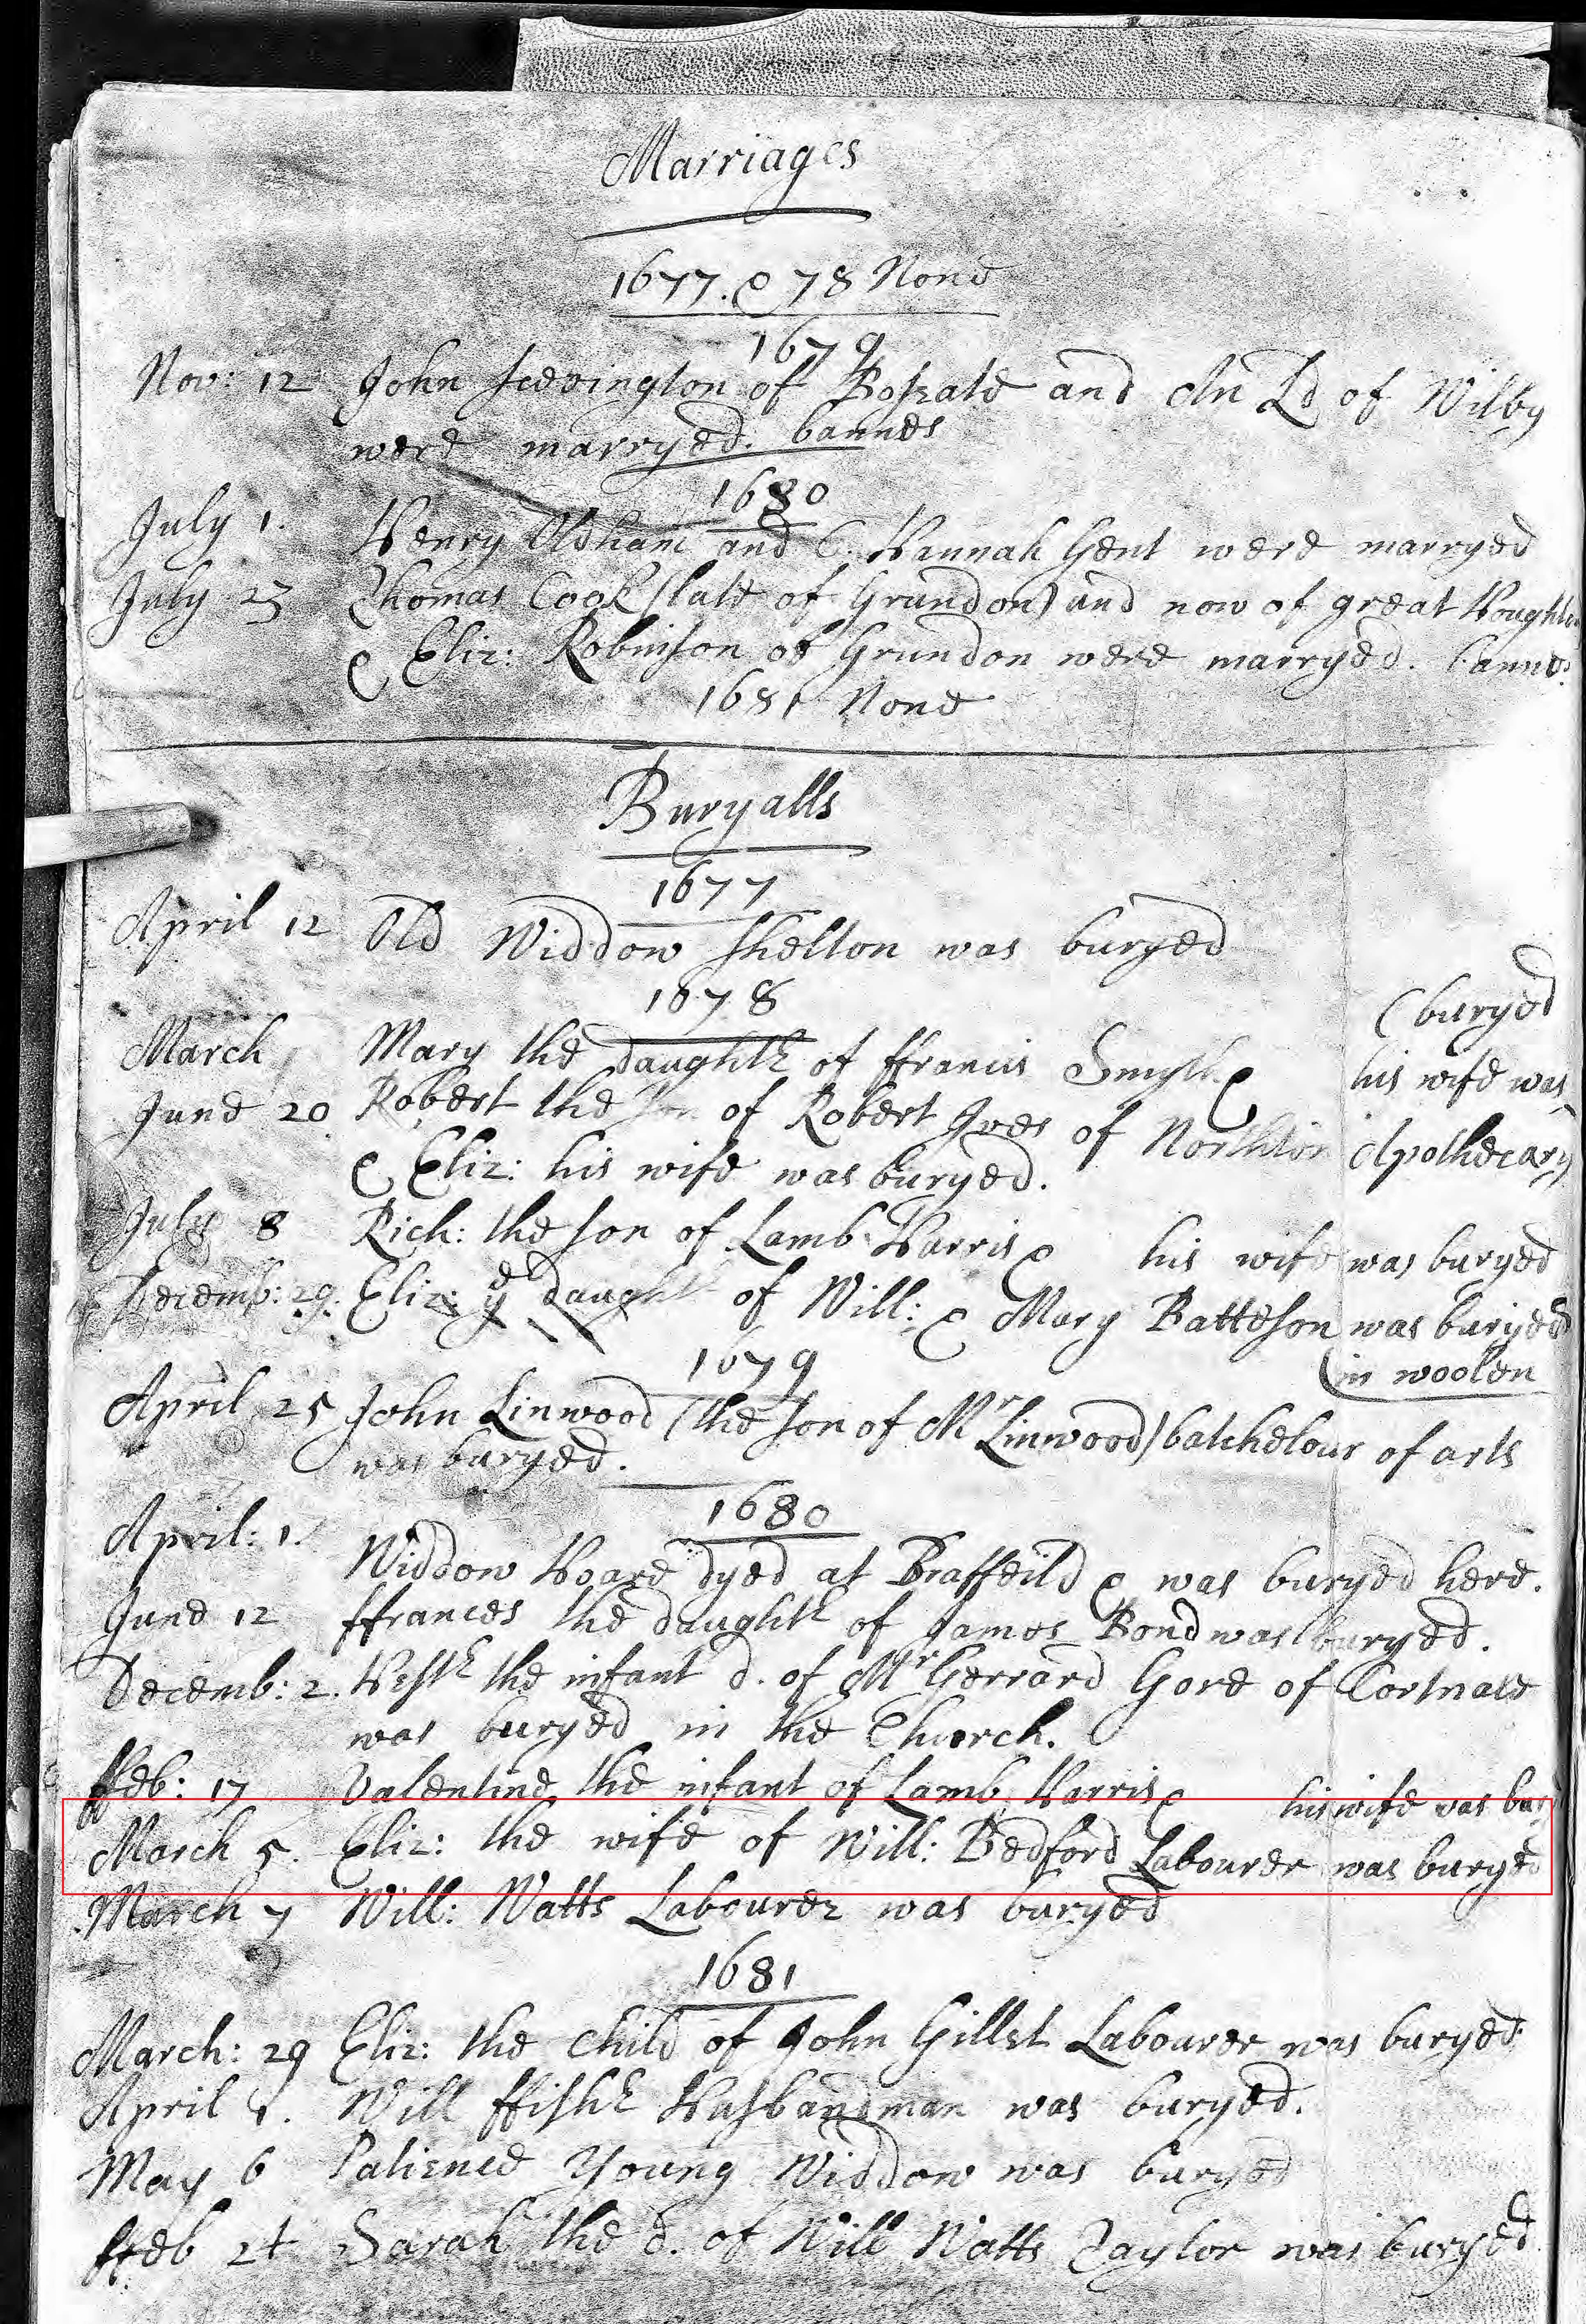 Marriages
1677. & 78 None
1679
Nov: 12 John of Bozeate and An of Wilby
were marryed. bannes
1680
July 1. Henry Oldham and Hannah Gent were marryed
July 23 Thomas Cook (late of Grundon) and now of great Houghton
& Eliz: Robinson of Grundon were marryed. bannes
1681 None
Buryalls
1677
April 12 Old Widdow Shelton was buryed
1678
(buryed
March Mary the daughtr of ffrancis Smyth & his wife was
June 20 Robert the son of Robert Ives of Northton Apothecary
& Eliz: his wife was buryed.
July 8 Rich: the son of Lamb: Harris & his wife was buryed
Decemb: 29. Eliz: ye daught of Will: & Mary Batteson was buryed
(in woolen
1679
April 25 John Linwood (the son of Mr Linwood) batchelour of arts
was buryed.
1680
April: 1. Widdow Hoare dyed at Braffeild & was buryed here.
June 12 ffrances the daughtr of James Bond was buryed.
Decemb: 2. Hestr the infant d. of Mr Gerrard Gore of
was buryed in the Church.
ffeb: 17 Valentine the infant of Lamb: Harris & his wife was bury
March 5. Eliz: the wife of Will: Bedford Labourer was buryed
March 7 Will: Watts Labourer was buryed
1681
March: 29 Eliz: the child of John Gillet Labourer was buryed
April 1. Will ffishr Husbandman was buryed.
May 6 Patience Young Widdow was buryed
ffeb 24 Sarah the d. of Will Watts Taylor was buryed